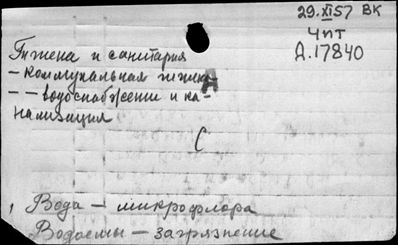 29.XI57 ВК
Чпт
Д.17840
Гигиена и санитария
— Коммунальная гигиена
— — водоснабжение и ка-
нализация
А
С
Вода — микрофлора
Водоемы — загрязнение